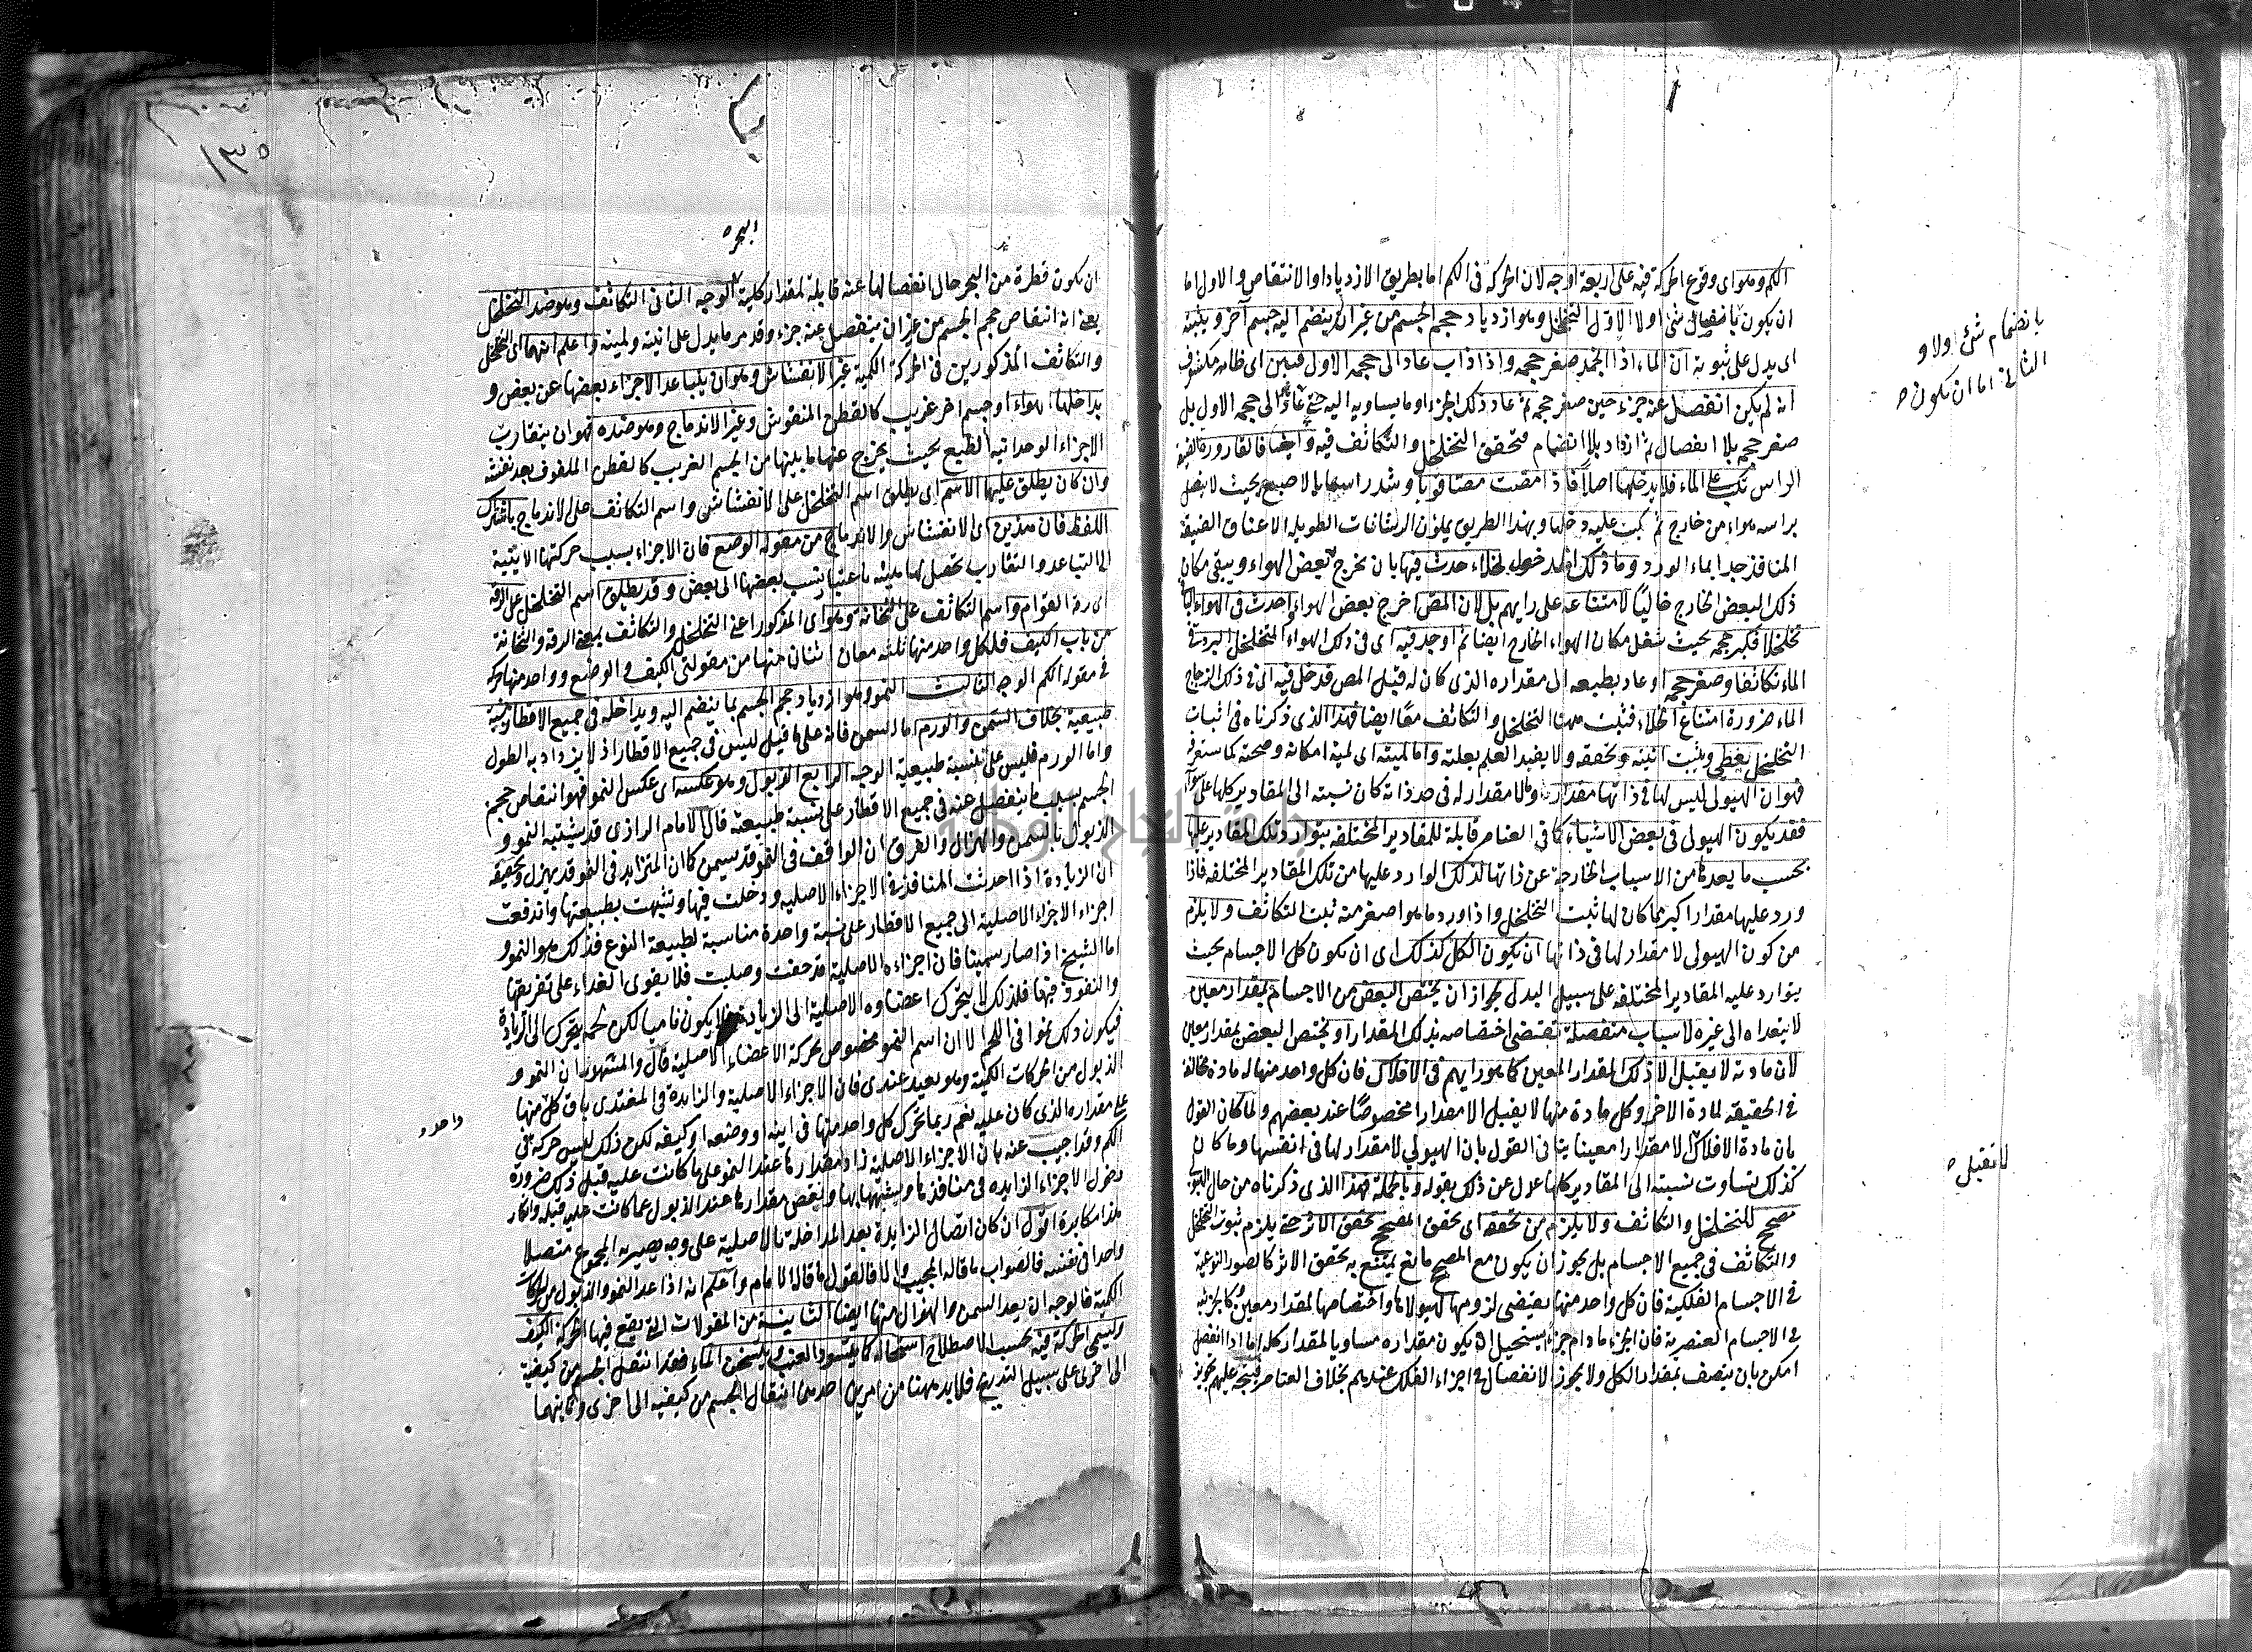 الكم وهو اى وقوع الحركة فيه على اربعة اوجه لان الحركة فى الكم اما بطريق الازدياد او الانتقاص والاول اما
ان يكون بانضمام شئ اولا الاول التخلخل وهو ازدياد حجم الجسم من غير ان ينضم اليه جسم آخر ويثبته
اى يدل على ثبوته ان الماء اذا انجمد صغر حجمه واذا ذاب عاد الى حجمه الاول فتبين اى ظهر
انه لم يكن انفصل عنه جزء حين صغر حجمه ثم عاد ذلك الجزء او ما يساويه اليه حتى عاد الى حجمه الاول بل
صغر حجمه بلا انفصال ثم ازداد بلا انضمام فتحقق التخلخل والتكاثف فيه وايضا فالقارورة الضيقة
الراس تكب على الماء فلا يدخلها اصلا فاذا مصت مصا قويا وشد راسها بالاصبع بحيث لا يصل
براسه هواء من خارج ثم كبت عليه دخلها وبهذا الطريق يملؤن الرشاشات الطويلة الاعناق الضيقة
المنافذ جدا بماء الورد وما ذلك الدخول لخلاء حدث فيها بان يخرج بعض الهواء ويبقى مكان
ذلك البعض الخارج خاليا لامتناعه على رايهم بل لان المص اخرج بعض الهواء واحدث فى الهواء الباقى
تخلخلا فكبر حجمه بحيث شغل مكان الهواء الخارج ايضا ثم اوجد فيه اى فى ذلك الهواء المتخلخل البرد الذى فى
الماء تكاثفا وصغر حجمه او عاد بطبعه الى مقداره الذى كان له قبل المص فدخل فيه اى فى ذلك الزجاج
الماء ضرورة امتناع الخلاء فثبت ههنا التخلخل والتكاثف معا ايضا فهذا الذى ذكرناه فى اثبات
التخلخل يعطى ويثبت انيته وتحققه ولا يفيد العلم بعلته واما لميته اى لمية امكانه وصحته كما ستعرفه
فهو ان الهيولى ليس لها فى ذاتها مقدار وما لا مقدار له فى حد ذاته كان نسبته الى المقادير كلها على سواء
فقد يكون الهيولى فى بعض الاشياء كما فى العناصر قابلة للمقادير المختلفة يتوارد تلك المقادير عليها
بحسب ما يعدها من الاسباب الخارجة عن ذاتها لذلك الوارد عليها من تلك المقادير المختلفة فاذا
ورد عليها مقدار اكبر مما كان لها ثبت التخلخل واذا ورد ما هو اصغر منه ثبت التكاثف ولا يلزم
من كون الهيولى لا مقدار لها فى ذاتها ان يكون الكل كذلك اى ان يكون كل الاجسام بحيث
يتوارد عليه المقادير المختلفة على سبيل البدل لجواز ان يختص البعض من الاجسام بمقدار معين
لا يتعداه الى غيره لاسباب منفصلة تقتضى اختصاصه بذلك المقدار او يختص البعض بمقدار معين
لان مادته لا يقبل الا ذلك المقدار المعين كما هو رايهم فى الافلاك فان كل واحد منها له مادة مخالفة
فى الحقيقة لمادة الاخر وكل مادة منها لا يقبل الا مقدارا مخصوصا عند بعضهم ولما كان القول
بان مادة الافلاك الا مقدارا معينا ينافى القول بان الهيولى لا مقدار لها فى انفسها وما كان
كذلك يتساوت نسبته الى المقادير كلها عدل عن ذلك بقوله وبالجملة فهذا الذى ذكرناه من حال الهيولى
مصحح للتخلخل والتكاثف ولا يلزم من تحققه اى تحقق المصحح تحقق الاثر حتى يلزم ثبوت التخلخل
والتكاثف فى جميع الاجسام بل يجوز ان يكون مع المصحح مانع يمتنع به تحقق الاثر كالصور النوعية
فى الاجسام الفلكية فان كل واحد منها يقتضى لزومها لهيولاها واختصاصها لمقدار معين وكالجزئية
فى الاجسام العنصرية فان الجزء مادام جزءا يستحيل ان يكون مقداره مساويا لمقدار كله اما اذا انفصل
امكن بان يتصف بمقدار الكل ولا يجوز الانفصال فى اجزاء الفلك عندهم بخلاف العناصر فيتجه عليهم تجويز
بانضمام شئ اولا و
الثانى اما ان يكون
لا تقبل
١٣٥
البحر
ان يكون قطرة من البحر حال انفصالها عنه قابلة لمقدار كلية الوجه الثانى التكاثف وهو ضد التخلخل
يعنى انه انتقاص حجم الجسم من غير ان ينفصل عنه جزء وقد مر ما يدل على انيته ولميته واعلم انهما اى التخلخل
والتكاثف المذكورين فى الحركة الكمية غير الانفشاش وهو ان يتباعد الاجزاء بعضها عن بعض و
يداخلها الهواء او جسم اخر غريب كالقطن المنفوش وغير الاندماج وهو ضده فهو ان يتقارب
الاجزاء الوحدانية الطبع بحيث يخرج عنها ما بينها من الجسم الغريب كالقطن الملفوف بعد نفشه
وان كان يطلق عليها الاسم اى يطلق اسم التخلخل على الانفشاش واسم التكاثف على الاندماج باشتراك
اللفظ فان هذين اى الانفشاش والاندماج من مقولة الوضع فان الاجزاء بسبب حركتها الاينية
الى التباعد والتقارب تحصل لها هيئة باعتبار نسب بعضها الى بعض وقد يطلق اسم التخلخل على الرقة
اى رقة القوام واسم التكاثف على الثخانة وهو اى المذكور اعنى التخلخل والتكاثف بمعنى الرقة والثخانة
من باب الكيف فلكل واحد منها ثلثه معان اثنان منها من مقولتى الكيف والوضع وواحد منها حركة
فى مقولة الكم الوجه الثالث النمو وهو ازدياد حجم الجسم بما ينضم اليه ويداخله فى جميع الاقطار بنسبة
طبيعية بخلاف السمن والورم اما السمن فانه على ما قيل ليس فى جميع الاقطار اذ لا يزداد به الطول
واما الورم فليس على نسبة طبيعية الوجه الرابع الذبول وهو عكسه اى عكس النمو فهو انتقاص حجم
الجسم بسبب ما ينفصل عنه فى جميع الاقطار على نسبة طبيعية قال الامام الرازى قد يشتبه النمو و
الذبول بالسمن والهزال والفرق ان الواقف فى النمو قد يسمن كما ان المتزايد فى النمو قد يهزل وتحقيقه
ان الزيادة اذا احدثت المنافذ فى الاجزاء الاصلية ودخلت فيها وتشبهت بطبيعتها واندفعت
اجزاء الاجزاء الاصلية الى جميع الاقطار على نسبة واحدة مناسبة لطبيعة النوع فذلك هو النمو و
اما الشيخ اذا صار سمينا فان اجزاءه الاصلية قد جفت وصلبت فلا يقوى الغذاء على تفريقها
والنفوذ فيها فلذلك لا يتحرك اعضاوه الاصلية الى الزيادة فلا يكون ناميا لكن لحمه يتحرك الى الزيادة
فيكون ذلك نموا فى اللحم الا ان اسم النمو مخصوص بحركة الاعضاء الاصلية قال والمشهور ان النمو و
الذبول من الحركات الكمية وهو بعيد عندى فان الاجزاء الاصلية والزايدة فى المغتذى باق كل منها
على مقداره الذى كان عليه نعم ربما تحرك كل واحد منها فى اينه او وضعه او كيفه لكن ذلك ليس حركة فى
الكم وقد اجيب عنه بان الاجزاء الاصلية زاد مقدارها عند النمو على ما كانت عليه قبل ذلك ضرورة
دخول الاجزاء الزايدة فى منافذها وتشبهها بها ونقص مقدارها عند الذبول عما كانت عليه قبله وانكار
هذا مكابرة اقول ان كان اتصال الزايدة بعد المداخلة بالاصلية على وجه يصير به المجموع متصلا
واحدا فى نفسه فالصواب ما قاله المجيب والا فالقول ما قاله الامام واعلم انه اذا عد النمو والذبول من الحركات
الكمية فالوجه ان يعد السمن والهزال منها ايضا الثانية من المقولات التى يقع فيها الحركة الكيف
وتسمى الحركة فيه بحسب الاصطلاح استحالة كما يتسود العنب ويتسخن الماء فقد انتقل الجسم من كيفية
الى اخرى على سبيل التدريج فلابد ههنا من امرين احدهما انتقال الجسم من كيفية الى اخرى وثانيهما
واحد
جامعة النجاح الوطنية